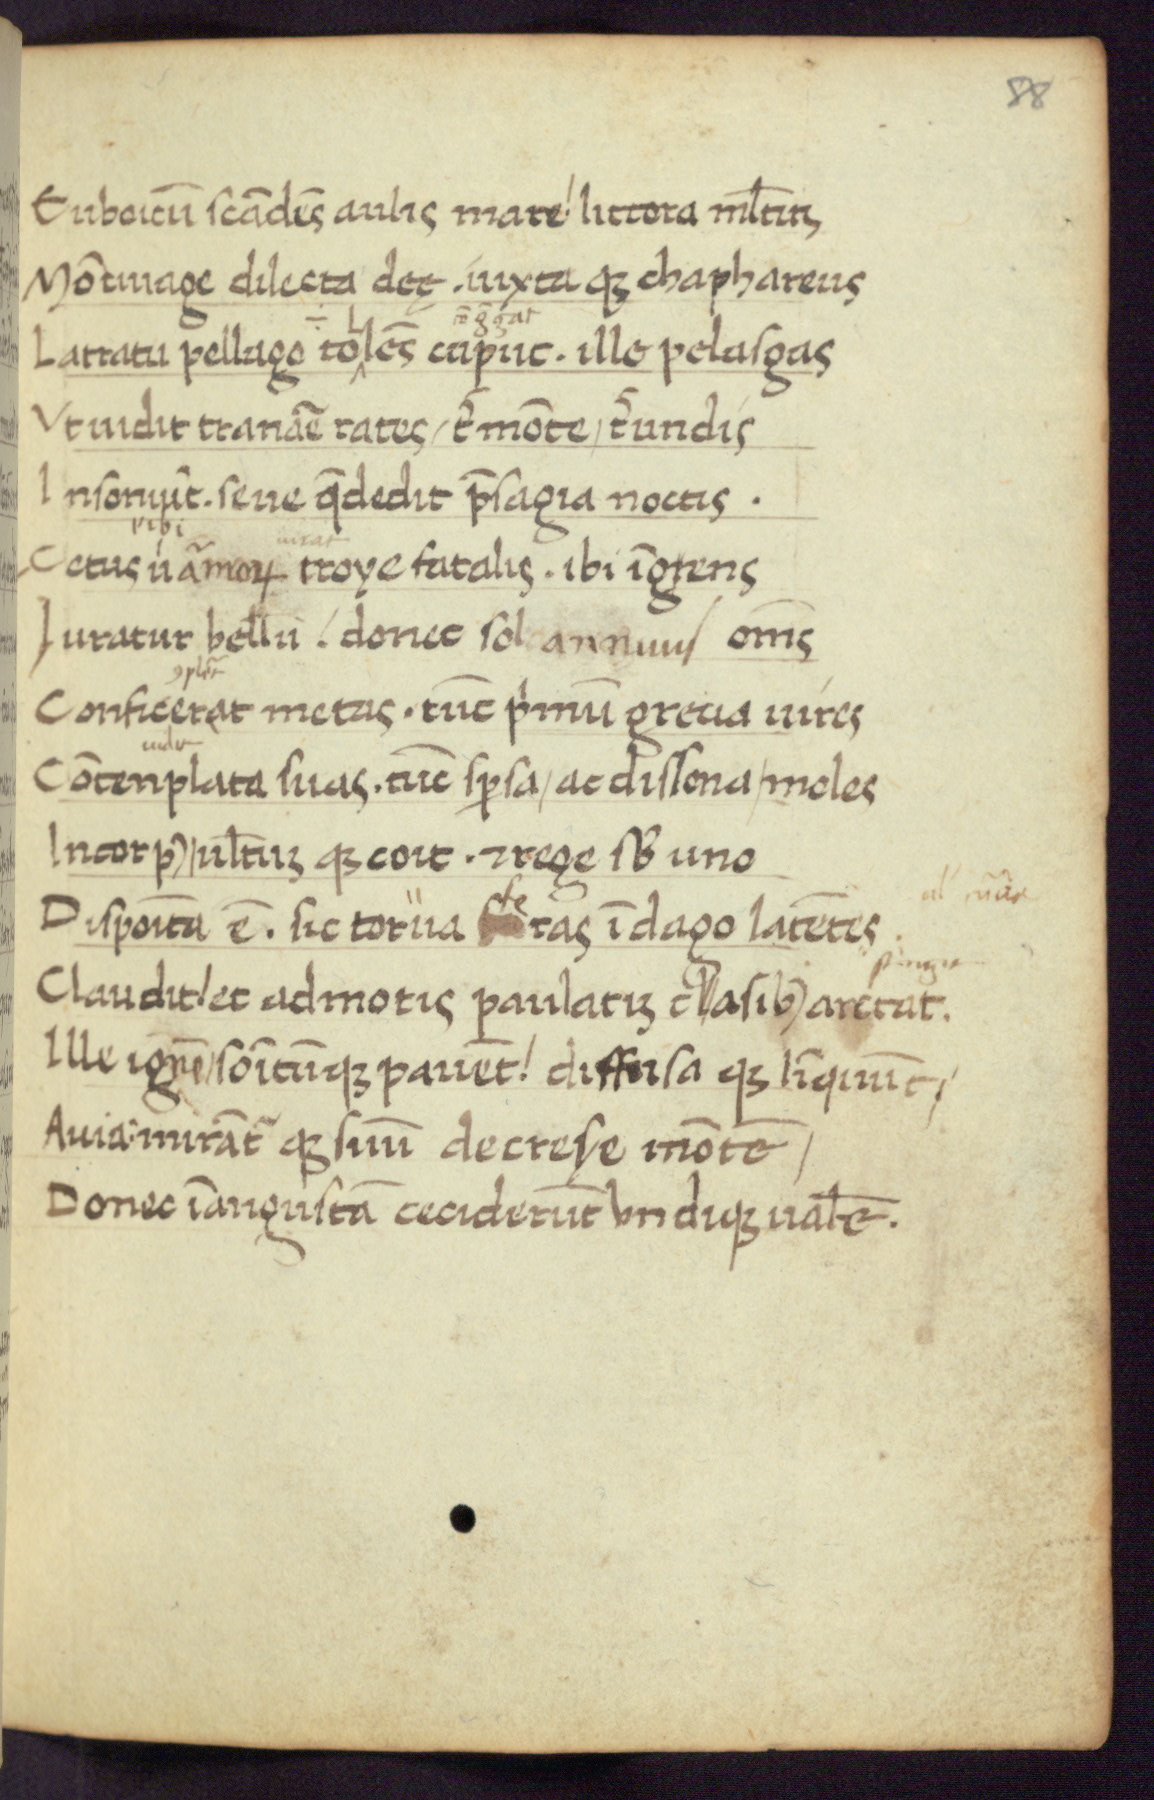 88
Euboicū scādēs aulis mare! littora ml̄tiꝫ
Mōtiuage dilecta deę . iuxta qꝫ chaphareus
÷ L cōg̃g̃at
Latratu pellago tolēs caput . ille pelasgas
Vt uidit tranāe rates / t̄ mōte / t̄ undis
Insonuit . seue q̄ dedit p̄sagia noctis .
v ibi iurat
Cetus ú ãmoꝝ troye fatalis . ibi īgnens
Iuratur bellū ! donec sol annuus om̄s
ꝯplēt
Conficerat metas . tūc pͥmū grecia uires
uidit
Cōtenplata suas . tūc spersa / ac dissona / moles
In corp⁾ / ul̄tuꝫ qꝫ coit . ⁊ rege sƀ uno
Dispoita ē . sic torua feras īdago latētes .
stringit
Claudit! et admotis paulatiꝫ cl asib⁾ artat .
Ille ignē / soītūqꝫ pauēt! diffusa qꝫ līquūt /
Auia: mirāt qꝫ suū decrese mōtē /
Donec ī angustā ceciderūt vndiqꝫ ual̄ē .